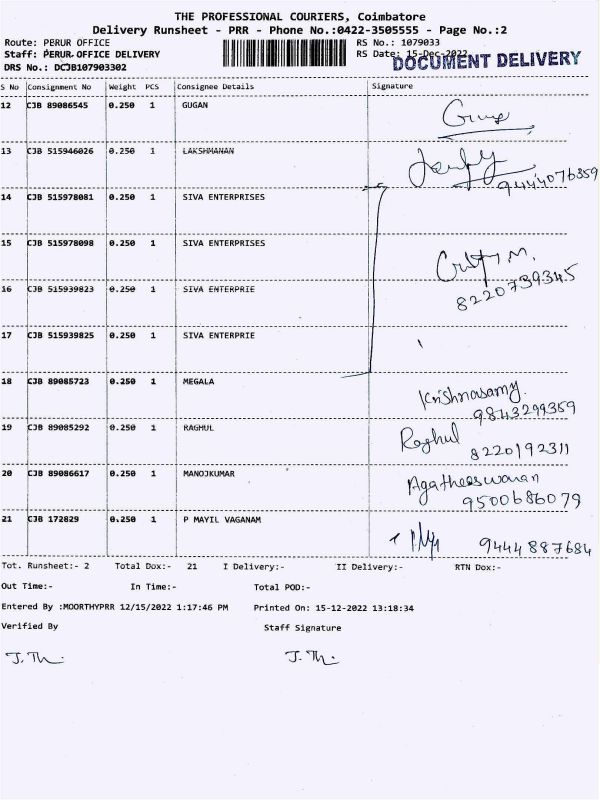 THE PROFESSIONAL COURIERS, Coimbatore
Delivery Runsheet - PRR - Phone No.:0422-3505555 - Page No.:2
Route: PERUR OFFICE RS No.: 1079033
Staff: PERUR OFFICE DELIVERY RS Date: 15-Dec-2022
DOCUMENT DELIVERY
DRS No.: DCJB107903302
S No Consignment No Weight PCS Consignee Details Signature
12 CJB 89086545 0.250 1 GUGAN
13 CJB 515946026 0.250 1 LAKSHMANAN
9444076359
14 CJB 515978081 0.250 1 SIVA ENTERPRISES
15 CJB 515978098 0.250 1 SIVA ENTERPRISES
8220739345
16 CJB 515939823 0.250 1 SIVA ENTERPRIE
17 CJB 515939825 0.250 1 SIVA ENTERPRIE
18 CJB 89085723 0.250 1 MEGALA Krishnasamy
9843299359
19 CJB 89085292 0.250 1 RAGHUL Raghul
8220192311
20 CJB 89086617 0.250 1 MANOJKUMAR Agatheeswaran
9500686079
21 CJB 172829 0.250 1 P MAYIL VAGANAM 9444887684
Tot. Runsheet:- 2 Total Dox:- 21 I Delivery:- II Delivery:- RTN Dox:-
Out Time:- In Time:- Total POD:-
Entered By :MOORTHYPRR 12/15/2022 1:17:46 PM Printed On: 15-12-2022 13:18:34
Verified By Staff Signature